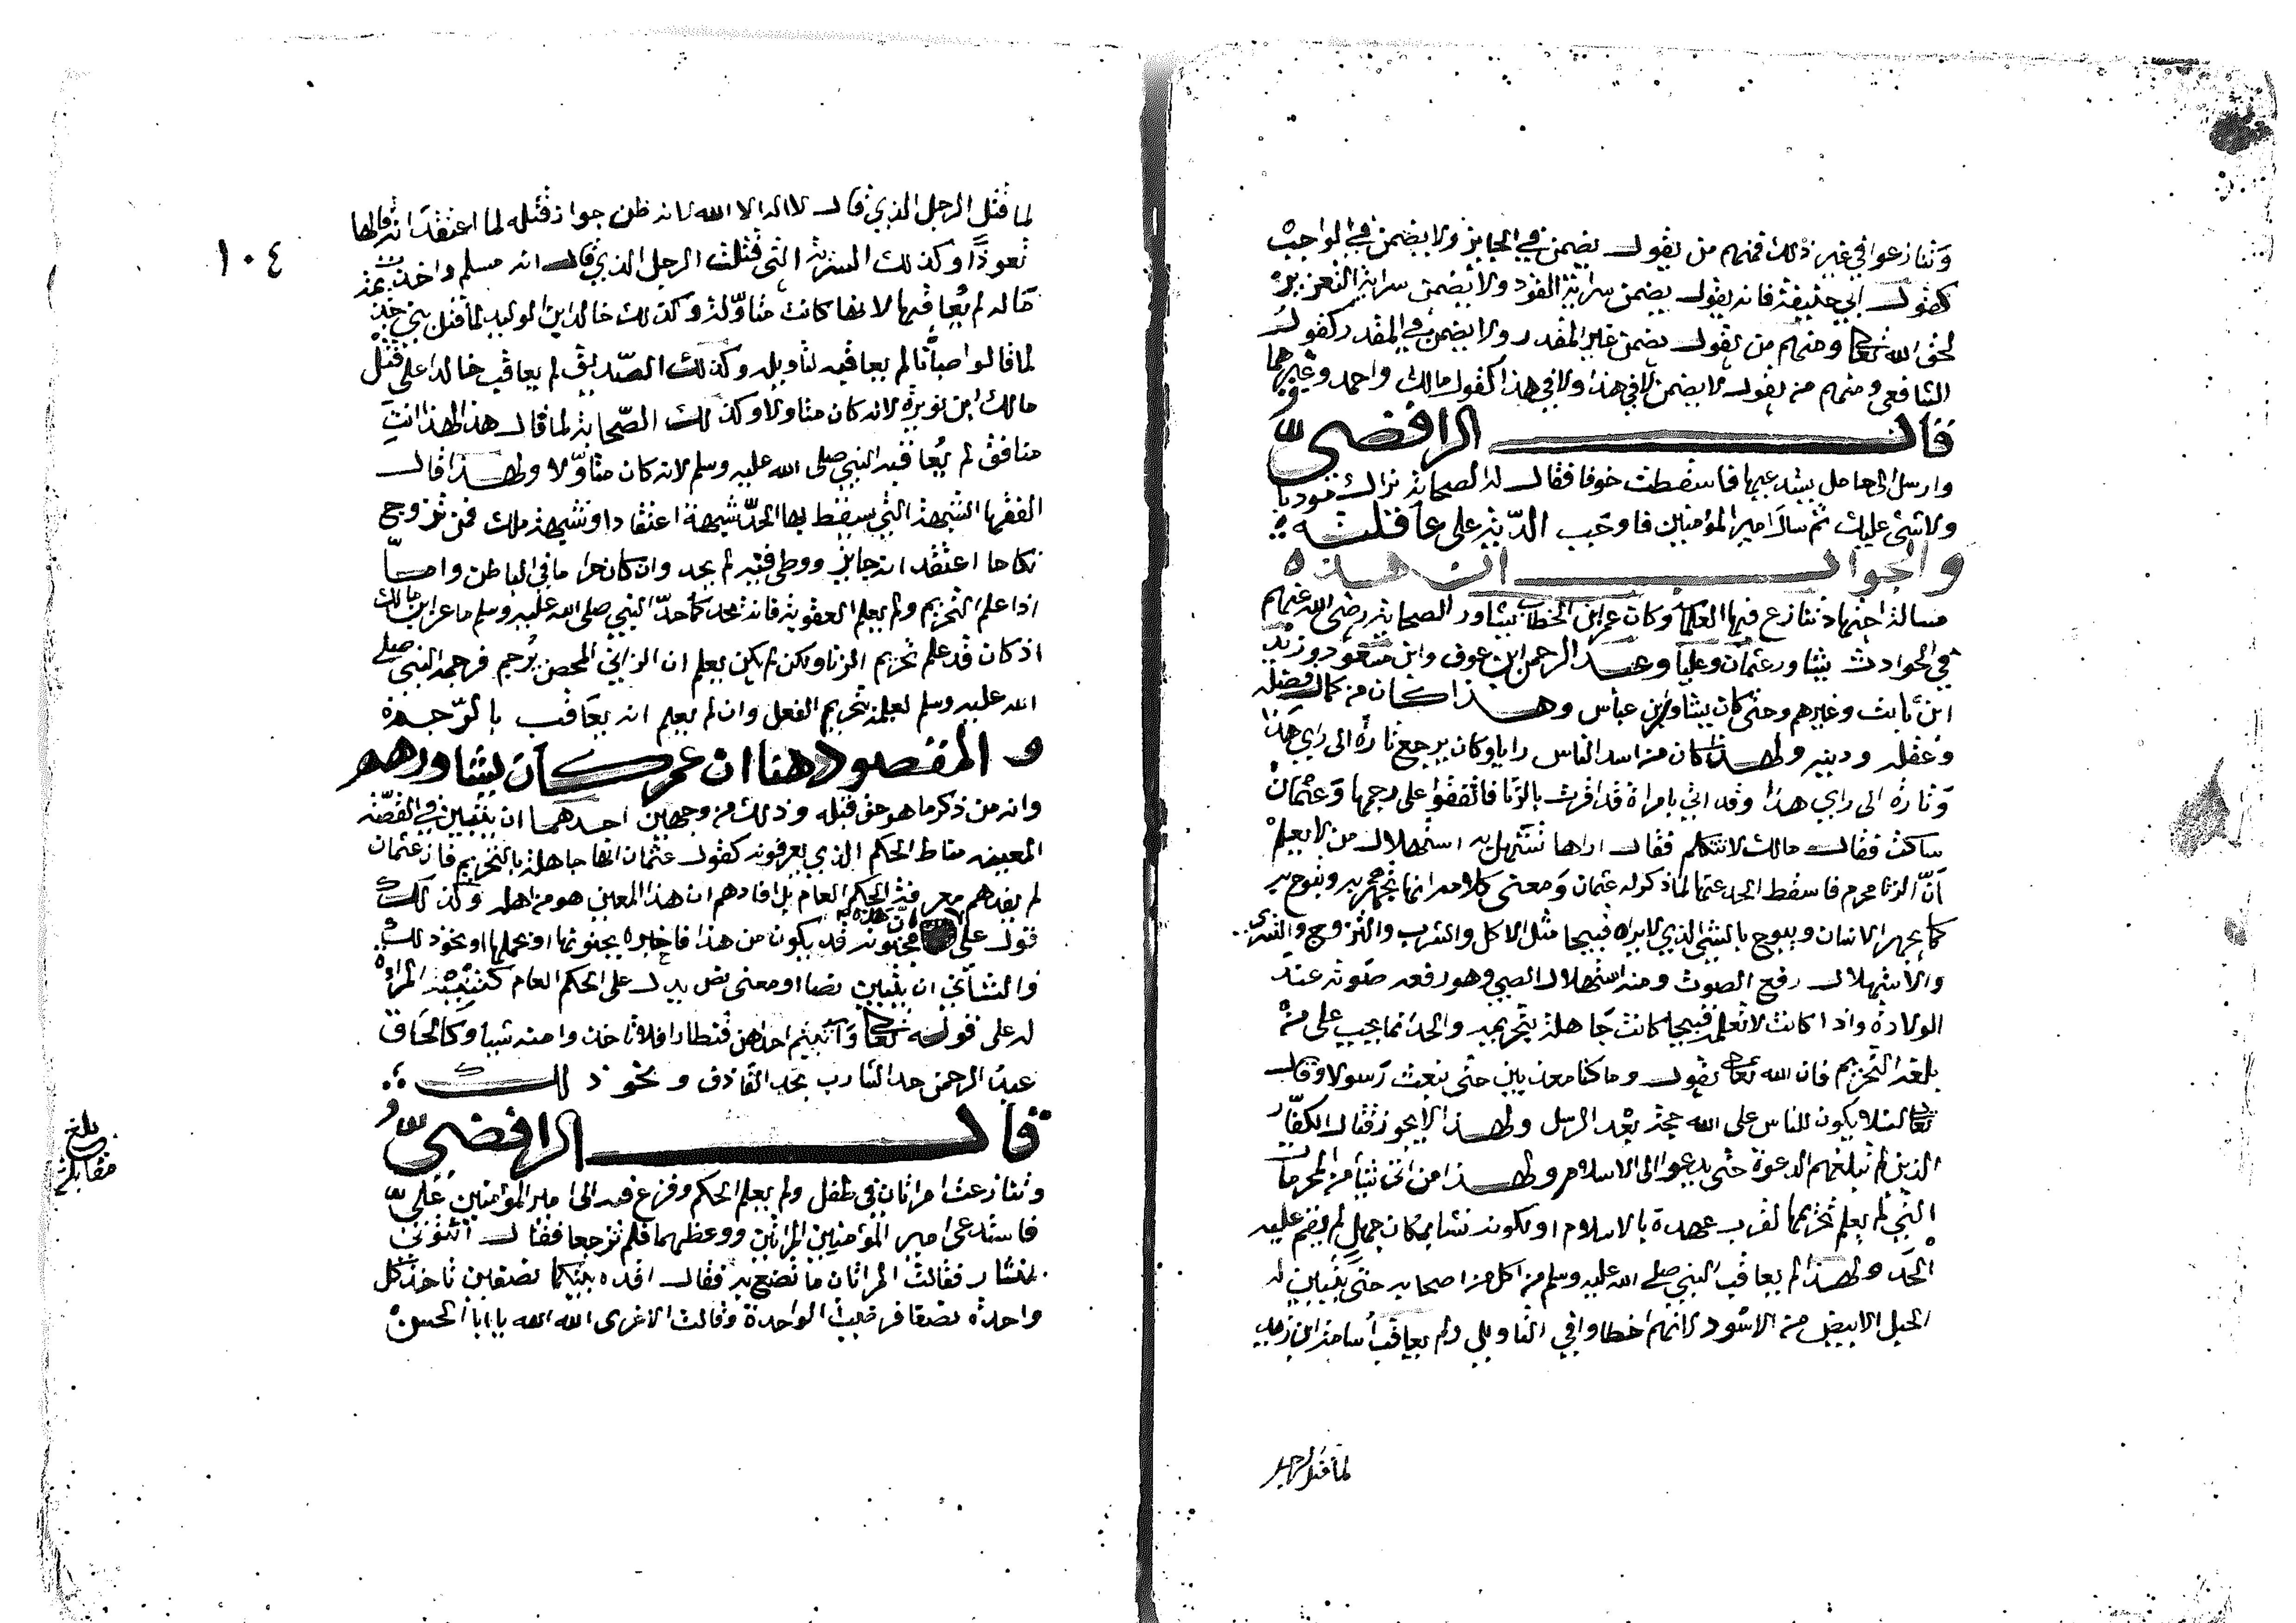 وتنازعوا في غير ذلك فمنهم من يقول يضمن في الجايز ولا يضمن في الواجب
كقول ابي حنيفة فانه يقول يضمن سراية القود ولا يضمن سراية التعزير
لحق الله تعالى ومنهم من يقول يضمن غير المقدر ولا يضمن في المقدر كقول
الشافعي ومنهم من يقول لا يضمن لا في هذا ولا في هذا كقول مالك واحمد وغيرهما
قال الرافضيّ
وارسل الى حامل يستدعيها فاسقطت خوفا فقال له الصحابة نراك مودبا
ولا شي عليك ثم سال امير المؤمنين فاوجب الدّية على عاقلته
والجواب ان هذه
مسالة اجتهاد تنازع فيها العلما وكان عمر ابن الخطاب يشاور الصحابة رضي الله عنهم
في الحوادث يشاور عثمان وعليا وعبد الرحمن ابن عوف وابن مسعود وزيد
ابن ثابت وغيرهم وحتى كان يشاور ابن عباس وهذا كان من كمال فضله
وعقله ودينه ولهذا كان من اسد الناس رايا وكان يرجع تارة الى راي هذا
وتارة الى راي هذا وقد اتي بامراة قد اقرت بالزنا فاتفقوا على رجمها وعثمان
ساكت فقال مالك لا تتكلم فقال اراها تستهل به استهلال من لا يعلم
انّ الزنا محرم فاسقط الحد عنها لما ذكر له عثمان ومعنى كلامه انها تجهر به وتبوح به
كما يجهر الانسان ويبوح بالشي الذي لا يراه قبيحا مثل الاكل والشرب والتزوج والتسري
والاستهلال رفع الصوت ومنه استهلال الصبي وهو رفعه صوته عند
الولادة واذا كانت لا تعلمه قبيحا كانت جاهلة بتحريمه والحد انما يجب على من
بلغه التحريم فان الله تعالى يقول وما كنا معذبين حتى نبعث رسولا وقال
تعالى لئلا يكون للناس على الله حجة بعد الرسل ولهذا لا يجوز قتال الكفّار
الذين لم تبلغهم الدعوة حتى يدعوا الى الاسلام ولهذا من اتى شيئا من المحرمات
التي لم يعلم تحريمها لقرب عهده بالاسلام او لكونه نشا بمكان جهل لم يقم عليه
الحد ولهذا لم يعاقب النبي صلى الله عليه وسلم من اكل من اصحابه حتى يتبين له
الحبل الابيض من الاسود لانهم اخطاوا في التاويل ولم يعاقب أسامة ابن زيد
لما قتل الرجل
١٠٤
لما قتل الرجل الذي قال لا اله الا الله لانه ظن جواز قتله لما اعتقد انه قالها
تعوذًا وكذلك السرية التي قتلت الرجل الذي قال انه مسلم واخذت غنمة
ماله لم يعاقبها لانها كانت متاوّلة وكذلك خالد ابن الوليد لما قتل بني جذيمة
لما قالوا صبأنا لم يعاقبه لتاويله وكذلك الصّديق لم يعاقب خالدا على قتل
مالك ابن نويرة لانه كان متاولا وكذلك الصّحابة لما قال هذا لهذا انت
منافق لم يُعاقبه النبي صلى الله عليه وسلم لانه كان متاوّلا ولهذا قال
الفقها الشبهة التي يسقط بها الحدّ شبهة اعتقاد وشبهة ملك فمن تزوج
نكاحا اعتقد انه جايز ووطى فيه لم يحد وان كان حراما في الباطن وامّا
اذا علم التحريم ولم يعلم العقوبة فانه يحد كما حدّ النبي صلى الله عليه وسلم ماعز ابن مالك
اذ كان قد علم تحريم الزنا ولكن لم يكن يعلم ان الزاني المحصن يُرجم فرجمه النبي صلى
الله عليه وسلم لعلمه بتحريم الفعل وان لم يعلم انه يعاقب بالرّجم
والمقصود هنا ان عمر كان يشاورهم
وانه من ذكر ما هو حق قبله وذلك من وجهين احدهما ان يتبين في القصّة
المعينه مناط الحكم الذي يعرفونه كقول عثمان انها جاهلة بالتحريم فان عثمان
لم يفدهم معرفة الحكم العام بل افادهم ان هذا المعين هو من اهله وكذلك
قول علي ان هذه مجنونه قد يكون من هذا فاخبره بجنونها او بحملها او نحو ذلك
والثاني ان يتبين نصا او معنى نص يدل على الحكم العام كتنبيه المراة
له على قوله تعالى وآتيتم احداهن قنطارا فلا تاخذوا منه شيا وكالحاق
عبد الرحمن حد الشارب بحد القاذف ونحو ذلك
قال الرافضيّ
وتنازعت امراتان في طفل ولم يعلم الحكم وفزع فيه الى امير المؤمنين عليّ
فاستدعى امير المؤمنين المراتين ووعظهما فلم ترجعا فقال ائتوني
بمنشار فقالت المراتان ما تصنع به فقال اقده بينكما نصفين تاخذ كل
واحدة نصفا فرضيت الواحدة وقالت الاخرى الله الله يا ابا الحسن
بلغ
مقابلة